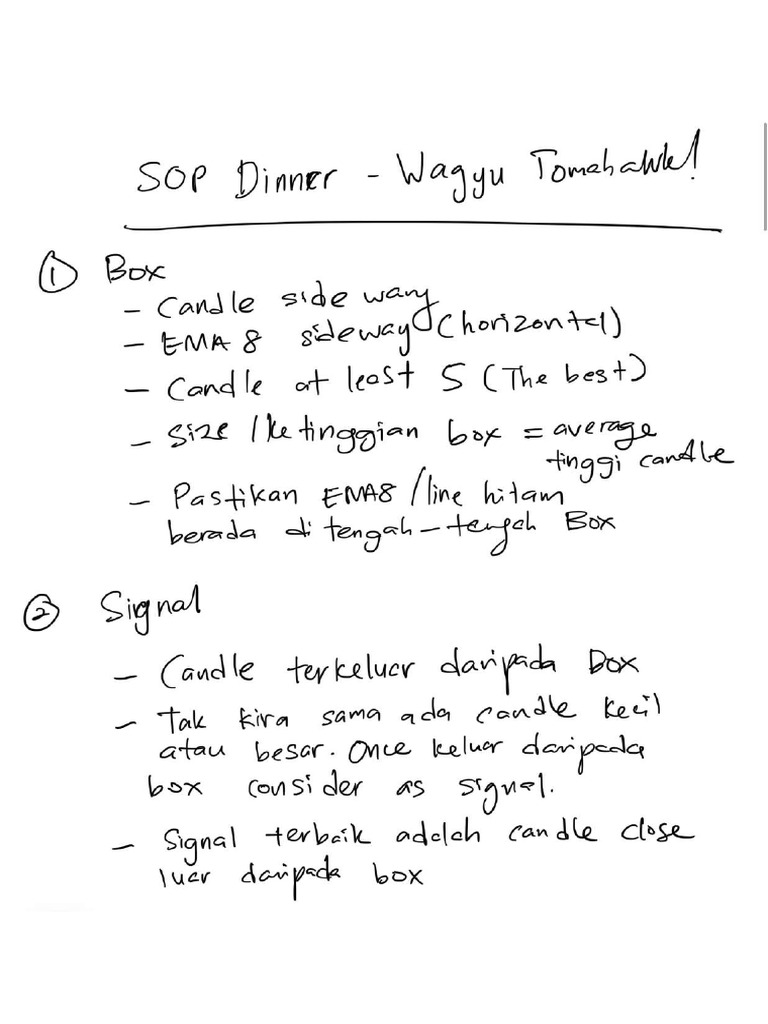 SOP Dinner - Wagyu Tomahawk!
① Box
- Candle sideway
- EMA 8 sideway (horizontal)
- Candle at least 5 (The best)
- Size / ketinggian box = average
tinggi candle
- Pastikan EMA8 / line hitam
berada di tengah-tengah Box
② Signal
- Candle terkeluar daripada Box
- Tak kira sama ada candle kecil
atau besar. Once keluar daripada
box consider as signal.
- Signal terbaik adalah candle close
luar daripada box